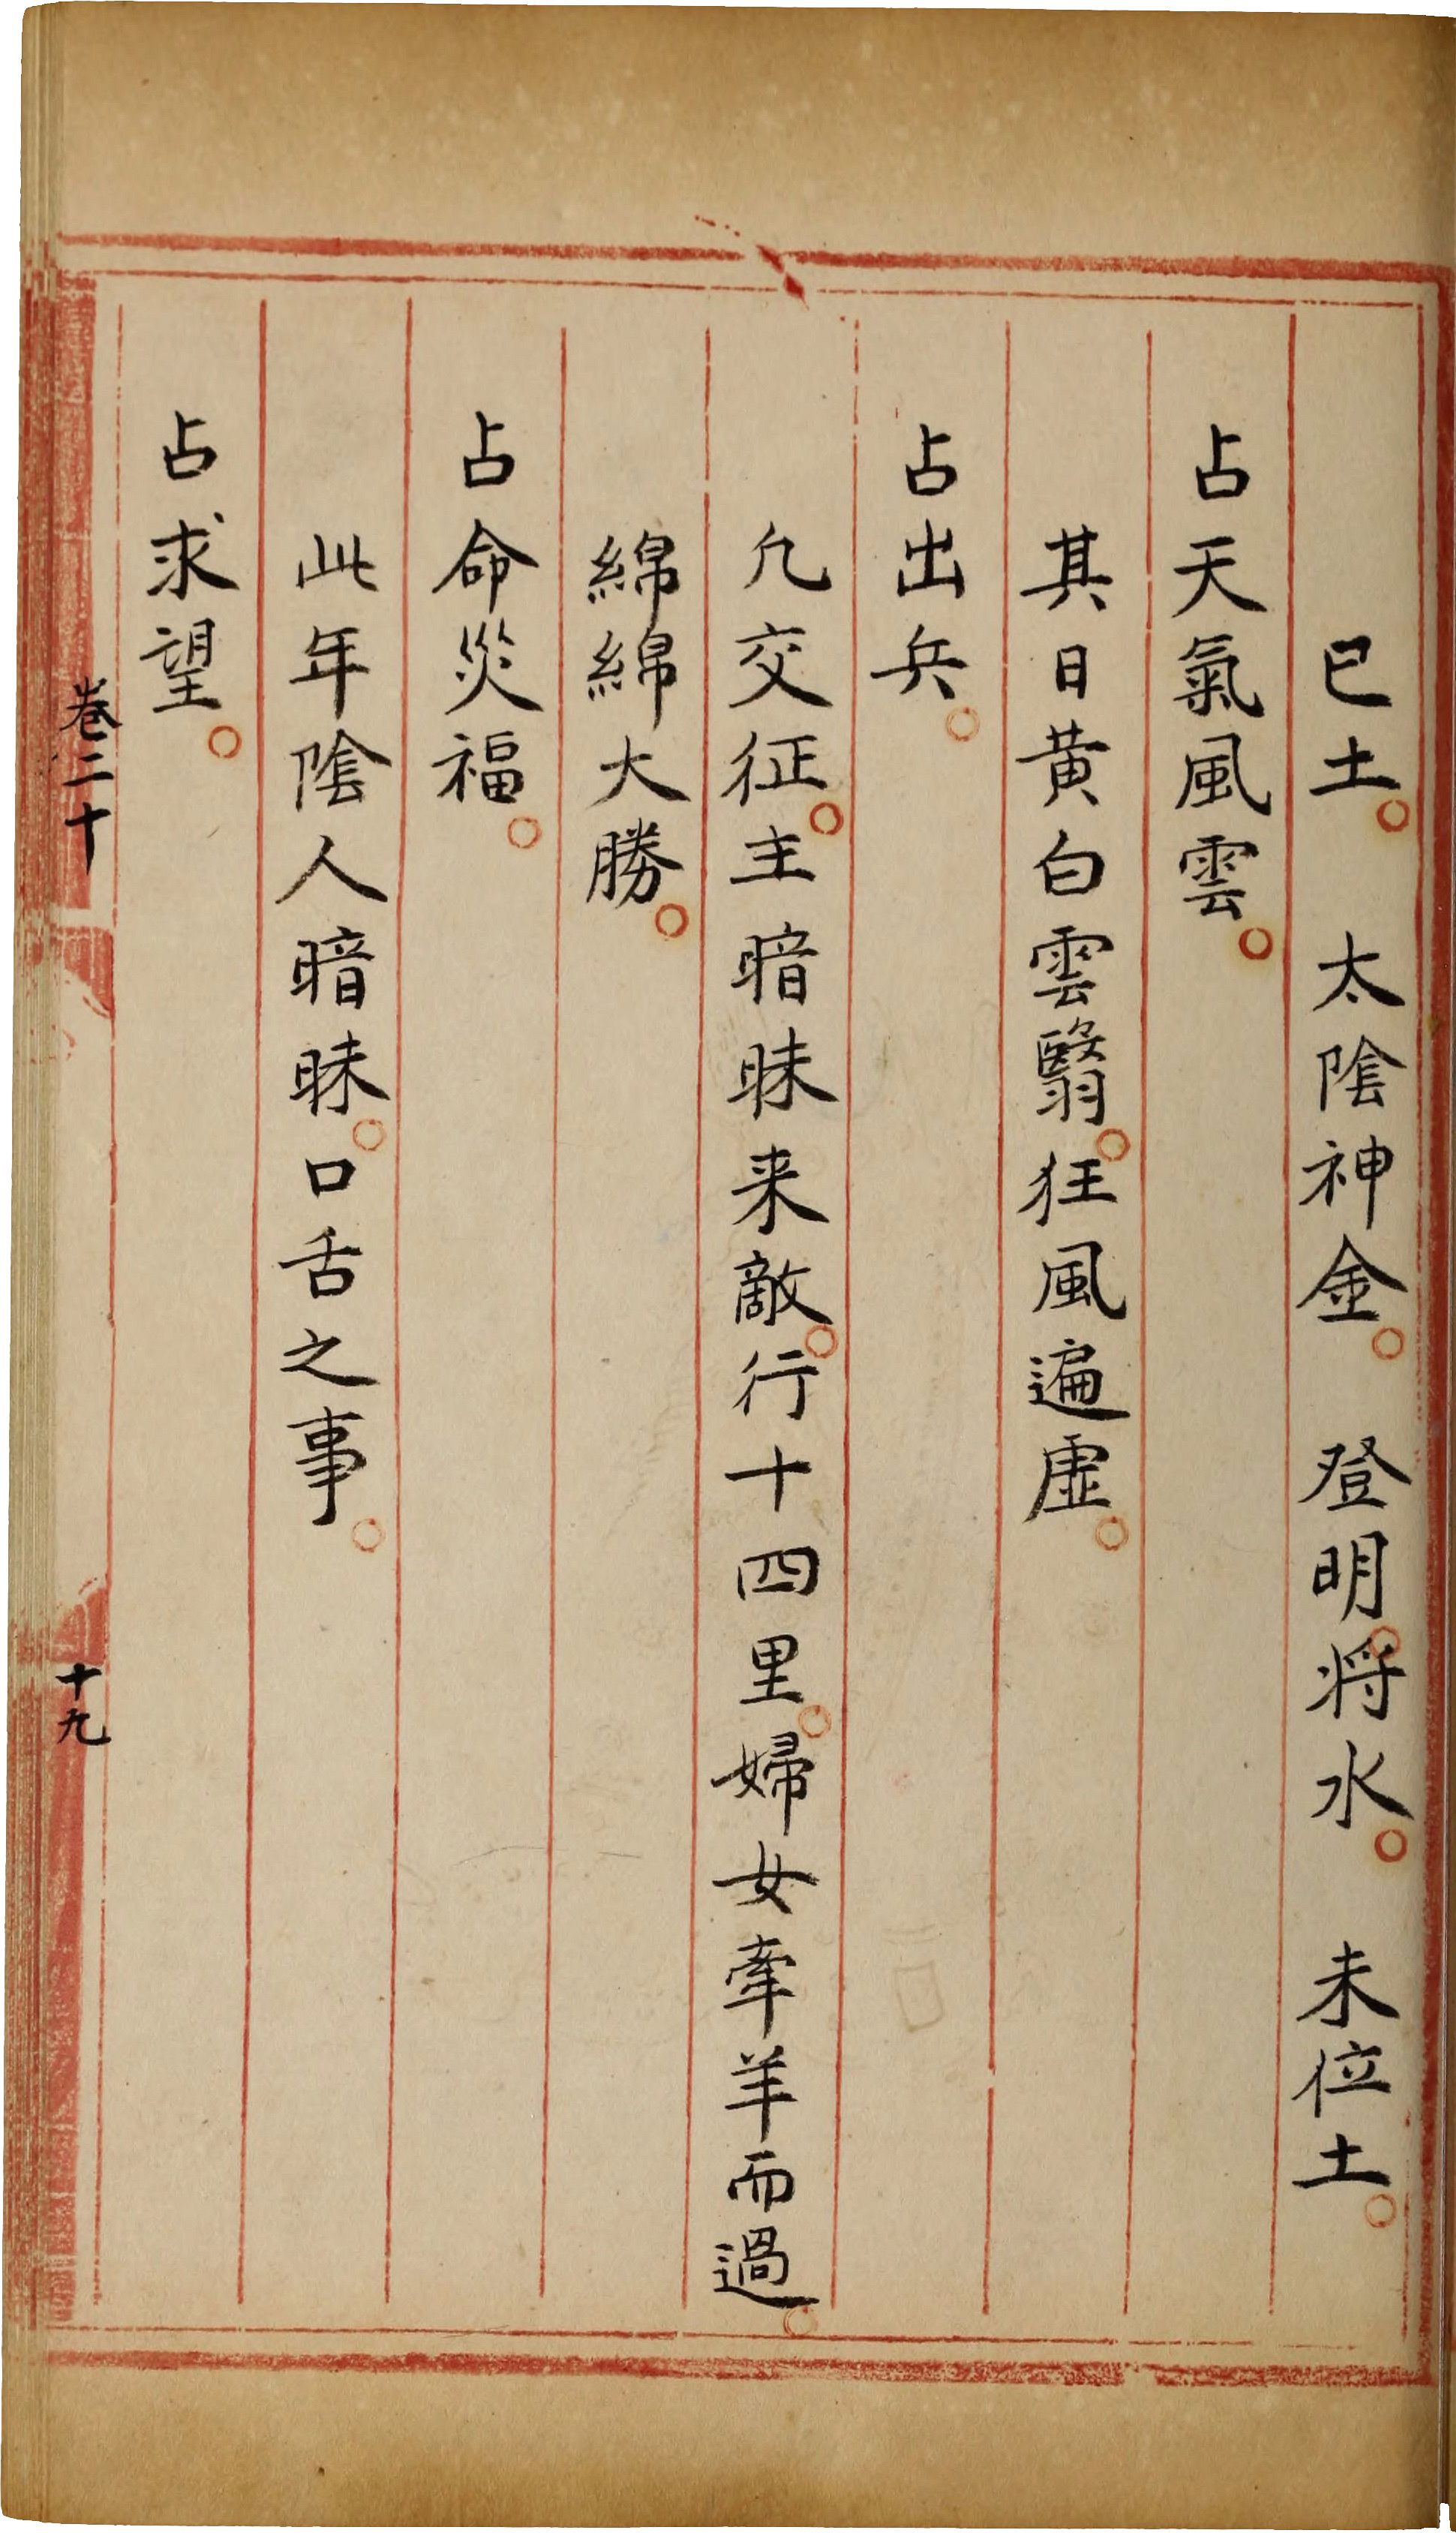 巳土。　太陰神金。　登明。將水。　未位土。
占天氣風雲。
其日黃白雲翳。狂風遍虛。
占出兵。
凢交征。主暗昧来敵。行十四里。婦女牽羊而過。
綿綿大勝。
占命災福。
此年陰人暗昧。口舌之事。
占求望。
卷二十
十九